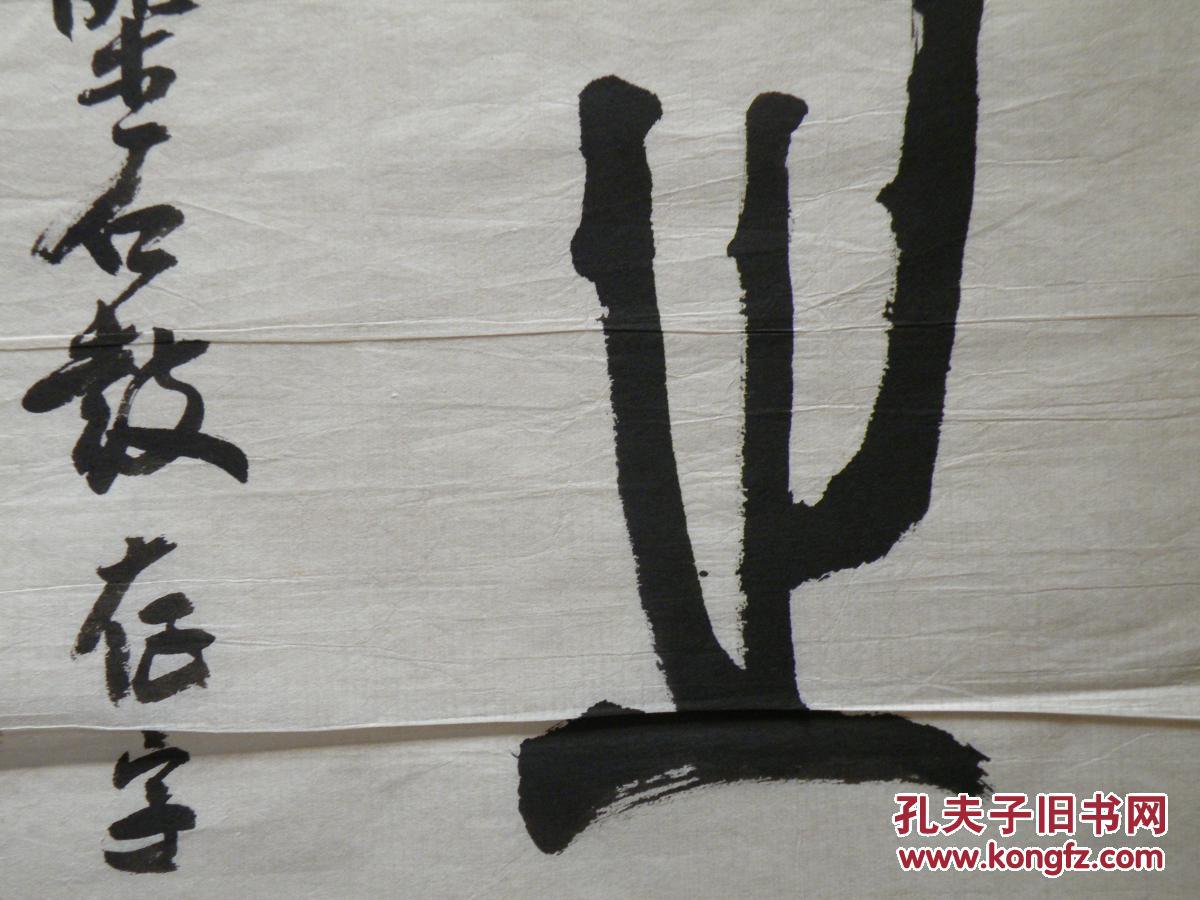 之
集石鼓存字
孔夫子旧书网
www.kongfz.com